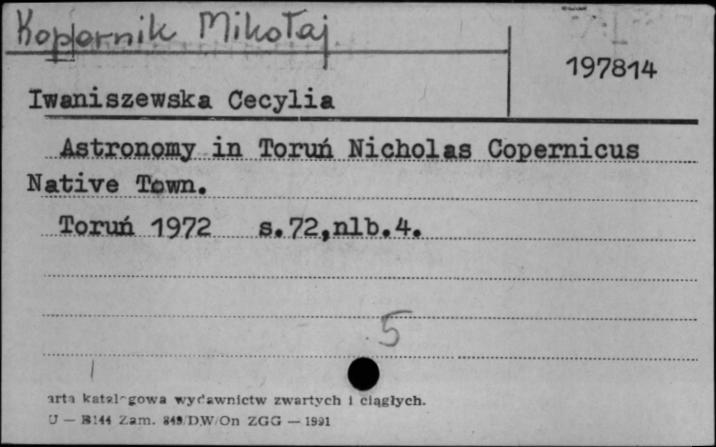 Kopernik Mikołaj
197814
Iwaniszewska Cecylia
Astronomy in Toruń Nicholas Copernicus
Native Town.
Toruń 1972 s.72,nlb.4.
5
arta katalogowa wydawnictw zwartych i ciągłych.
U — B144 Zam. 849/D,W/On ZGG — 1991